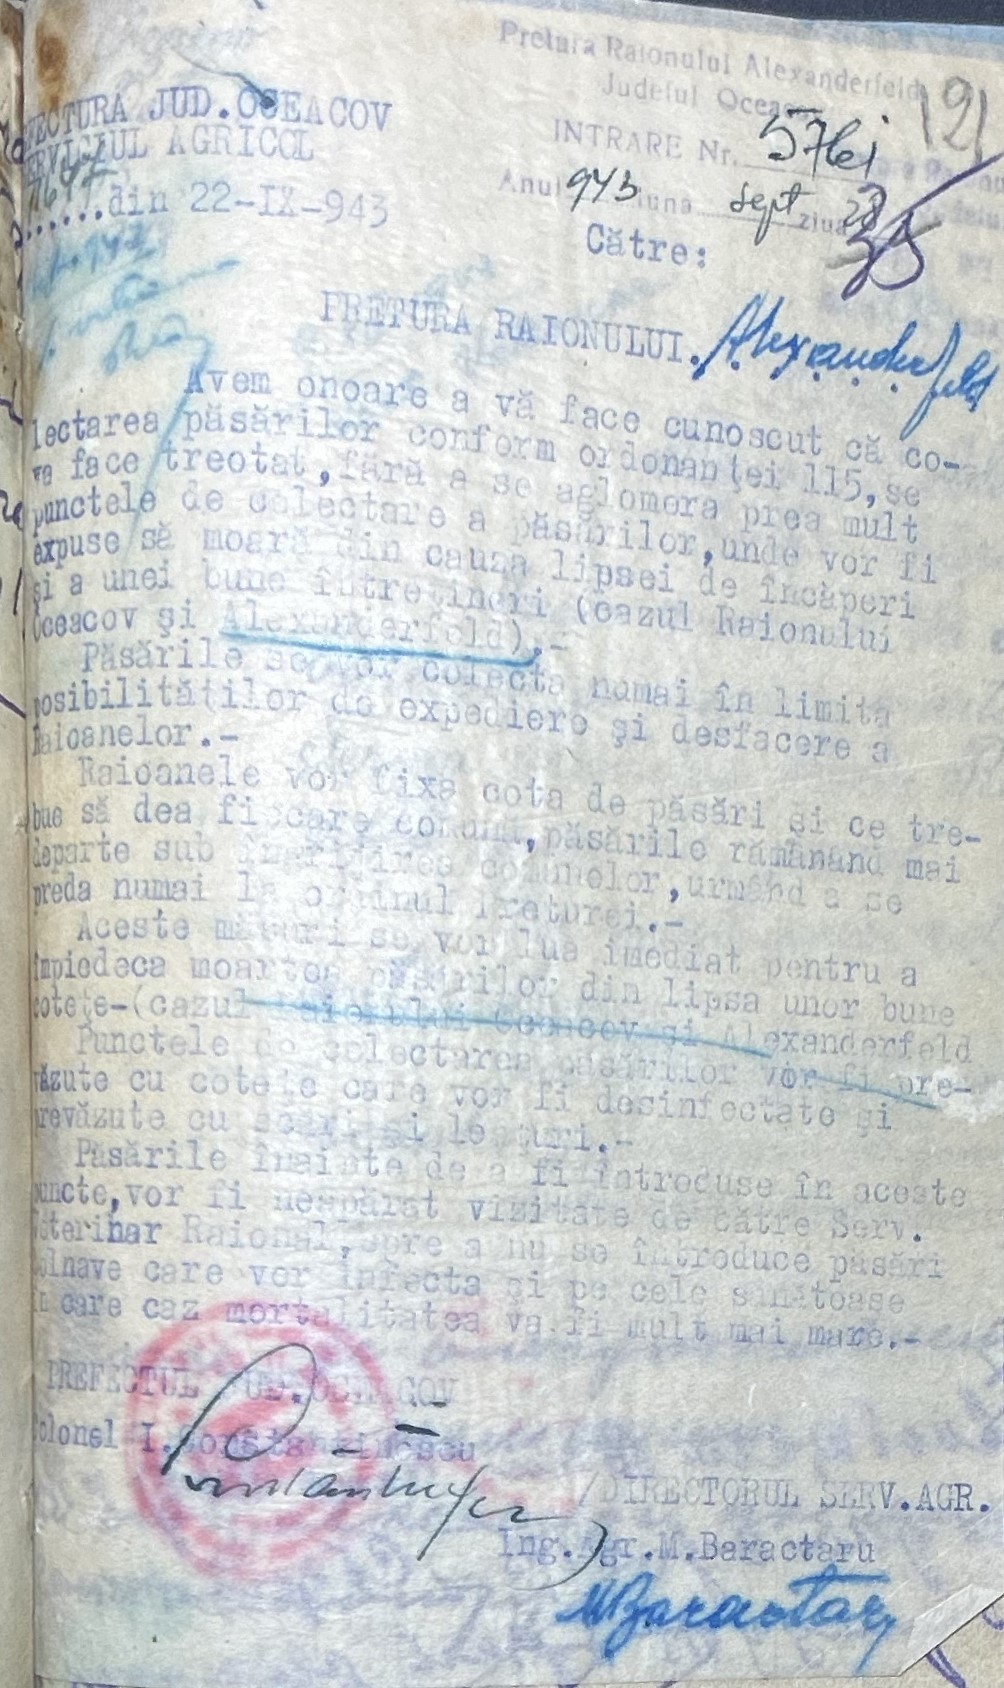 Pretura Raionului Alexanderfeld
Județul Oceacov
121
INTRARE Nr. 5761
Anul 943 luna sept ziua 28
35
FECTURA JUD.OCEACOV
ERVICIUL AGRICOL
......din 22-IX-943
Către:
PRETURA RAIONULUI. Alexanderfeld
Avem onoare a vă face cunoscut că co-
lectarea păsărilor conform ordonanței 115,se
va face treptat,fără a se aglomera prea mult
punctele de colectare a păsărilor,unde vor fi
expuse să moară din cauza lipsei de încăperi
și a unei bune întrețineri (cazul Raionului
Oceacov și Alexanderfeld).-
Păsările se vor colecta numai în limita
posibilităților de expediere și desfacere a
Raioanelor.-
Raioanele vor fixa cota de păsări și ce tre-
bue să dea fiecare comună,păsările rămânand mai
departe sub îngrijirea comunelor,urmând a se
preda numai la ordinul Preturei.-
Aceste măsuri se vor lua imediat pentru a
împiedeca moartea păsărilor din lipsa unor bune
cotețe-(cazul Raionului Oceacov și Alexanderfeld
Punctele de colectarea păsărilor vor fi pre-
văzute cu cotețe care vor fi desinfectate și
prevăzute cu scări și le turi.-
Păsările înainte de a fi introduse în aceste
puncte,vor fi neapărat vizitate de către Serv.
Veterinar Raional,spre a nu se introduce păsări
bolnave care vor infecta și pe cele sănătoase
în care caz mortalitatea va fi mult mai mare.-
PREFECTUL JUD.OCEACOV
Colonel I.Constantinescu
/DIRECTORUL SERV.AGR.
Ing.Agr.M.Baractaru
MBaractaru